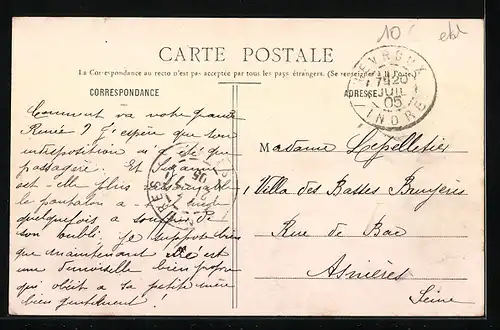 10
CARTE POSTALE
La Correspondance au recto n'est pas acceptée par tous les pays étrangers. (Se renseigner à la Poste)
CORRESPONDANCE
ADRESSE
LEVROUX
JUIL
05
INDRE
Comment va votre grande
Renée ? J'espère que son
indisposition n'a été que
passagère. Et
est-elle plus
le pantalon a
quelquefois à souffrir
son oubli. Je suppose bien
que maintenant est
une demoiselle bien propre
qui obéit à sa petite mère
bien gentiment !
Madame Lepelletier
1 Villa des Basses Bruyères
Rue de Bac
Asnières
Seine